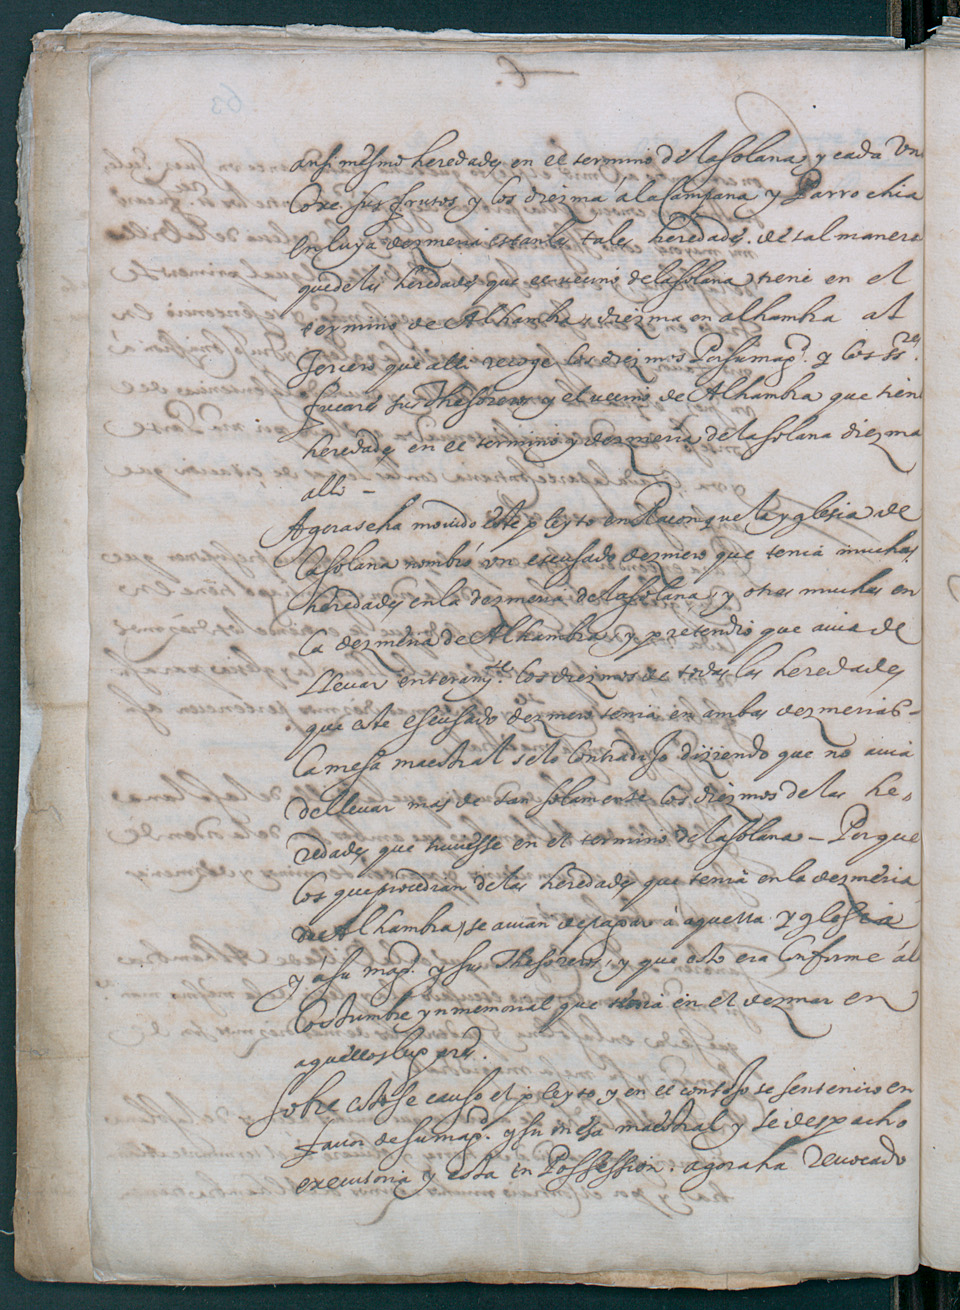 ansi mesmo heredades en el termino de la solana, y cada Un
Coxe sus frutos y los diezma á la Campana y Parrochia
en cuya dezmeria estan las tales heredades. de tal manera
que de las heredades que el vecino de la solana tiene en el
termino de Alhambra, diezma en alhambra al
tercero que alli recoge los diezmos Por su magd. y los ss.res
fucares sus Thesoreros y el vecino de Alhambra que tiene
heredades en el termino y dezmeria de la solana diezma
alli –
Agora se ha movido este pleyto en Raçon que la yglesia de
la solana nombró un escusado dezmero que tenia muchas
heredades en la dezmeria de la solana, y otras muchas en
la dezmeria de Alhambra, y pretendio que avia de
llevar enteramte. los diezmos de todas las heredades
que este escusado dezmero tenia en ambas dezmerias –
la mesa maestral se lo contradixo diziendo que no avia
de llevar mas de tan solamente los diezmos de las he-
redades que tuviesse en el termino de la solana – Porque
los que procedian de las heredades que tenia en la dezmeria
de Alhambra, se avian de pagar á aquella yglesia
y a su magd. y sus Thesoreros, y que esto era Conforme ál
Costumbre ynmemorial que tenia en el dezmar en
aquellos lugares.
sobre esto se causo el pleyto, y en el consejo se sentencio en
favor de su magd. y su mesa maestral y se despacho
executoria y esta en Possession. agora ha revocado